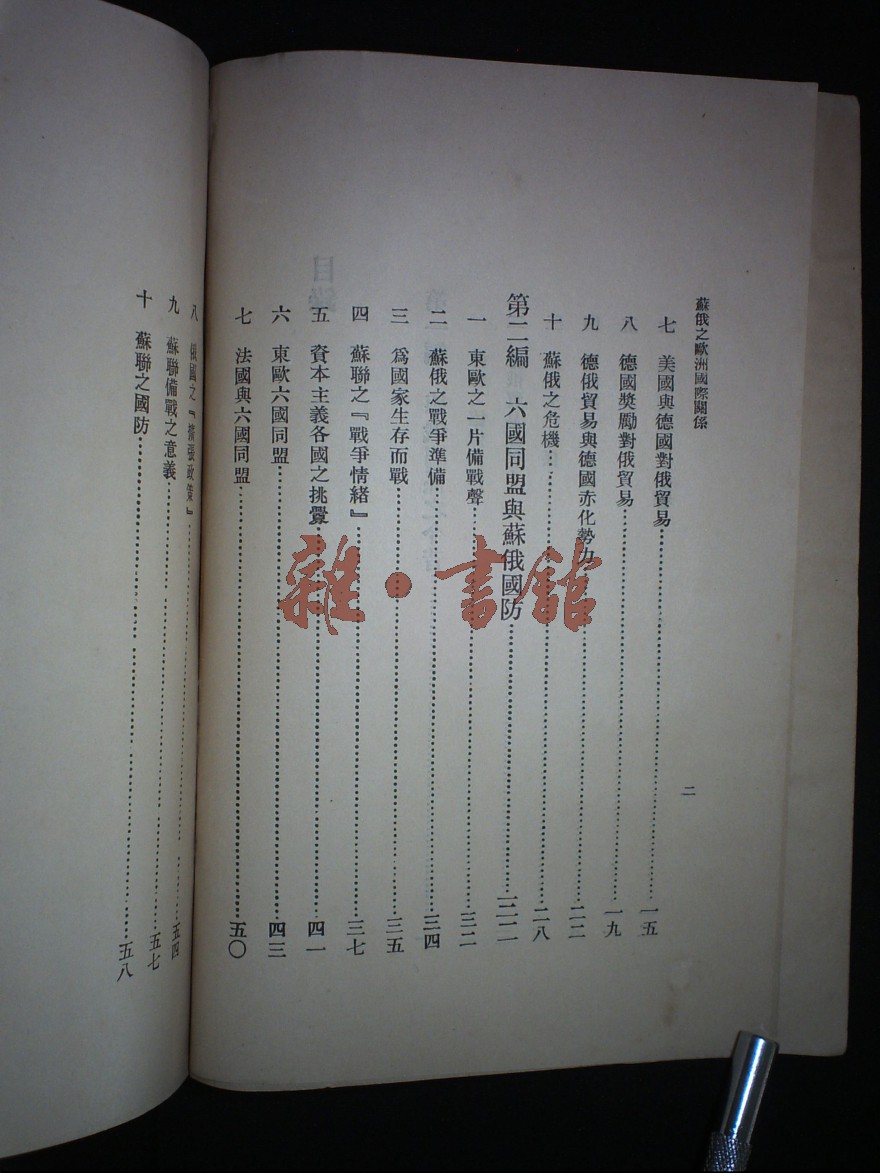 蘇俄之歐洲國際關係
二
七 美國與德國對俄貿易……一五
八 德國獎勵對俄貿易……一九
九 德俄貿易與德國赤化勢力……二二
十 蘇俄之危機……二八
第二編 六國同盟與蘇俄國防……三二
一 東歐之一片備戰聲……三二
二 蘇俄之戰爭準備……三四
三 爲國家生存而戰……三五
四 蘇聯之『戰爭情緒』……三七
五 資本主義各國之挑釁……四一
六 東歐六國同盟……四三
七 法國與六國同盟……五〇
八 俄國之『擴張政策』……五四
九 蘇聯備戰之意義……五七
十 蘇聯之國防……五八
目錄
雜·書館